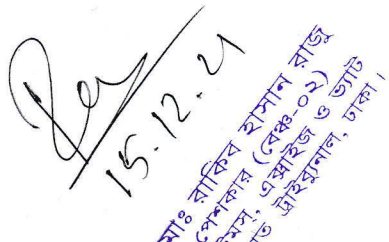 15.12.21
মোঃ রাকিব হাসান রাজু
পেশকার (বেঞ্চ-০২)
কাস্টমস, এক্সাইজ ও ভ্যাট
ট্রাইব্যুনাল, ঢাকা।